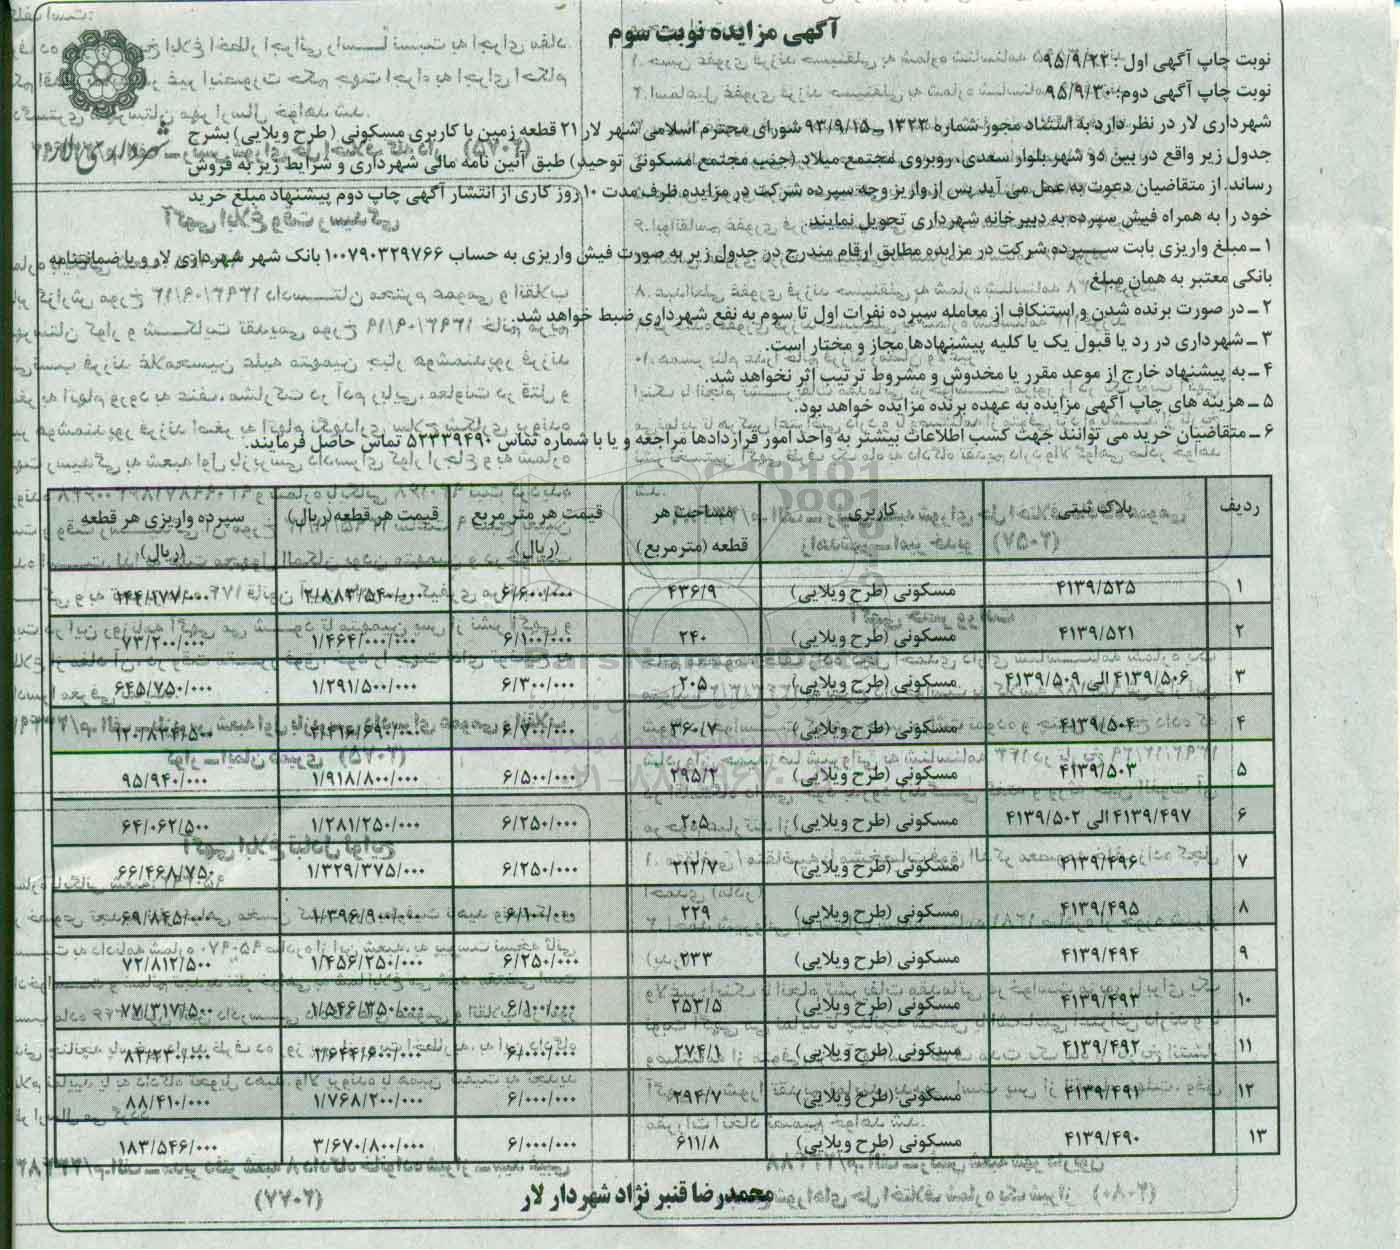 آگهی مزایده نوبت سوم
نوبت چاپ آگهی اول: ۹۵/۹/۲۲
نوبت چاپ آگهی دوم: ۹۵/۹/۳۰
شهرداری لار
شهرداری لار در نظر دارد به استناد مجوز شماره ۱۳۲۳ ـ ۹۳/۹/۱۵ شورای محترم اسلامی شهر لار ۲۱ قطعه زمین با کاربری مسکونی (طرح ویلایی) بشرح
جدول زیر واقع در بین دو شهر بلوار سعدی، روبروی مجتمع میلاد (جنب مجتمع مسکونی توحید) طبق آئین نامه مالی شهرداری و شرایط زیر به فروش
رساند. از متقاضیان دعوت به عمل می آید پس از واریز وجه سپرده شرکت در مزایده ظرف مدت ۱۰ روز کاری از انتشار آگهی چاپ دوم پیشنهاد مبلغ خرید
خود را به همراه فیش سپرده به دبیرخانه شهرداری تحویل نمایند.
۱ ـ مبلغ واریزی بابت سپرده شرکت در مزایده مطابق ارقام مندرج در جدول زیر به صورت فیش واریزی به حساب ۱۰۰۷۹۰۳۲۹۷۶۶ بانک شهر شهرداری لار و یا ضمانتنامه
بانکی معتبر به همان مبلغ
۲ ـ در صورت برنده شدن و استنکاف از معامله سپرده نفرات اول تا سوم به نفع شهرداری ضبط خواهد شد.
۳ ـ شهرداری در رد یا قبول یک یا کلیه پیشنهادها مجاز و مختار است.
۴ ـ به پیشنهاد خارج از موعد مقرر یا مخدوش و مشروط ترتیب اثر نخواهد شد.
۵ ـ هزینه های چاپ آگهی مزایده به عهده برنده مزایده خواهد بود.
۶ ـ متقاضیان خرید می توانند جهت کسب اطلاعات بیشتر به واحد امور قراردادها مراجعه و یا با شماره تماس ۵۲۳۳۹۴۹۰ تماس حاصل فرمایند.
ردیف پلاک ثبتی کاربری مساحت هر قطعه (مترمربع) قیمت هر متر مربع (ریال) قیمت هر قطعه (ریال) سپرده واریزی هر قطعه (ریال)
۱ ۴۱۳۹/۵۲۵ مسکونی (طرح ویلایی) ۴۳۶/۹ ۶/۶۰۰/۰۰۰ ۲/۸۸۳/۵۴۰/۰۰۰ ۱۴۴/۱۷۷/۰۰۰
۲ ۴۱۳۹/۵۲۱ مسکونی (طرح ویلایی) ۲۴۰ ۶/۱۰۰/۰۰۰ ۱/۴۶۴/۰۰۰/۰۰۰ ۷۳/۲۰۰/۰۰۰
۳ ۴۱۳۹/۵۰۶ الی ۴۱۳۹/۵۰۹ مسکونی (طرح ویلایی) ۲۰۵ ۶/۳۰۰/۰۰۰ ۱/۲۹۱/۵۰۰/۰۰۰ ۶۴۵/۷۵۰/۰۰۰
۴ ۴۱۳۹/۵۰۴ مسکونی (طرح ویلایی) ۳۶۰/۷ ۶/۷۰۰/۰۰۰ ۲/۴۱۶/۶۹۰/۰۰۰ ۱۲۰/۸۳۴/۵۰۰
۵ ۴۱۳۹/۵۰۳ مسکونی (طرح ویلایی) ۲۹۵/۲ ۶/۵۰۰/۰۰۰ ۱/۹۱۸/۸۰۰/۰۰۰ ۹۵/۹۴۰/۰۰۰
۶ ۴۱۳۹/۴۹۷ الی ۴۱۳۹/۵۰۲ مسکونی (طرح ویلایی) ۲۰۵ ۶/۲۵۰/۰۰۰ ۱/۲۸۱/۲۵۰/۰۰۰ ۶۴/۰۶۲/۵۰۰
۷ ۴۱۳۹/۴۹۶ مسکونی (طرح ویلایی) ۲۱۲/۷ ۶/۲۵۰/۰۰۰ ۱/۳۲۹/۳۷۵/۰۰۰ ۶۶/۴۶۸/۷۵۰
۸ ۴۱۳۹/۴۹۵ مسکونی (طرح ویلایی) ۲۲۹ ۶/۱۰۰/۰۰۰ ۱/۳۹۶/۹۰۰/۰۰۰
۹ ۴۱۳۹/۴۹۴ مسکونی (طرح ویلایی) ۲۳۳ ۶/۲۵۰/۰۰۰ ۱/۴۵۶/۲۵۰/۰۰۰ ۷۲/۸۱۲/۵۰۰
۱۰ ۴۱۳۹/۴۹۳ مسکونی (طرح ویلایی) ۲۵۳/۵ ۶/۱۰۰/۰۰۰ ۱/۵۴۶/۳۵۰/۰۰۰ ۷۷/۳۱۷/۵۰۰
۱۱ ۴۱۳۹/۴۹۲ مسکونی (طرح ویلایی) ۲۷۴/۱ ۶/۰۰۰/۰۰۰
۱۲ ۴۱۳۹/۴۹۱ مسکونی (طرح ویلایی) ۲۹۴/۷ ۶/۰۰۰/۰۰۰ ۱/۷۶۸/۲۰۰/۰۰۰ ۸۸/۴۱۰/۰۰۰
۱۳ ۴۱۳۹/۴۹۰ مسکونی (طرح ویلایی) ۶۱۱/۸ ۶/۰۰۰/۰۰۰ ۳/۶۷۰/۸۰۰/۰۰۰ ۱۸۳/۵۴۶/۰۰۰
محمدرضا قنبر نژاد شهردار لار